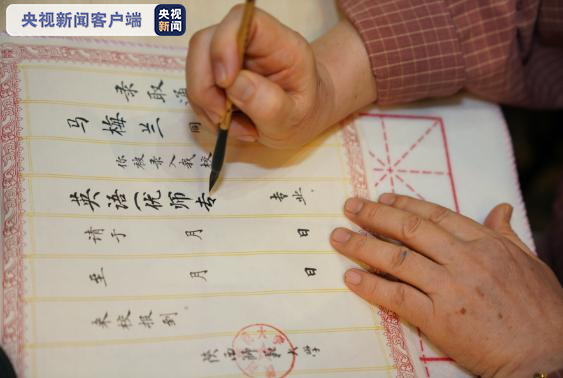 央视新闻客户端
央视
新闻
录取通
马梅兰 同
你被录入我校
英语（优师专
专业。
请于 月 日
至 月 日
来校报到。
陕西师范大学